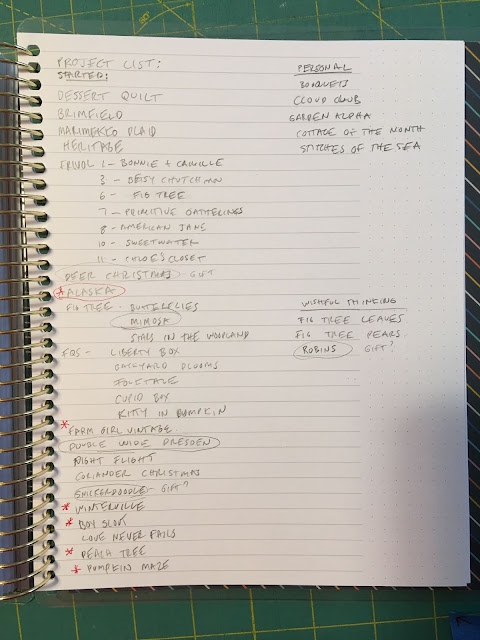 PROJECT LIST:
STARTED:
DESSERT QUILT
BRIMFIELD
MARIMEKKO PLAID
HERITAGE
FRIVOL 2 - BONNIE + CAMILLE
3 - DENYSE SCHMIDT
6 - FIG TREE
7 - PRIMITIVE GATHERINGS
8 - AMERICAN JANE
10 - SWEETWATER
11 - CHLOE'S CLOSET
DEER CHRISTMAS - GIFT
* ALASKA
FIG TREE - BUTTERFLIES
MIMOSA
STARS IN THE WOODLAND
FQS - LIBERTY BOX
BACKYARD BLOOMS
FOLKTALE
CUPID BOX
KITTY IN PUMPKIN
* FARM GIRL VINTAGE
DOUBLE WIDE DRESDEN
NIGHT FLIGHT
CORIANDER CHRISTMAS
SNICKERDOODLE - GIFT?
* WINTERVILLE
* BOY
LOVE NEVER FAILS
* PEACH TREE
* PUMPKIN MAZE
PERSONAL
BOUQUETS
CLOUD CLUB
GARDEN ALPHA
COTTAGE OF THE MONTH
STITCHES OF THE SEA
WISHFUL THINKING
FIG TREE LEAVES
FIG TREE PEARS
ROBINS GIFT?